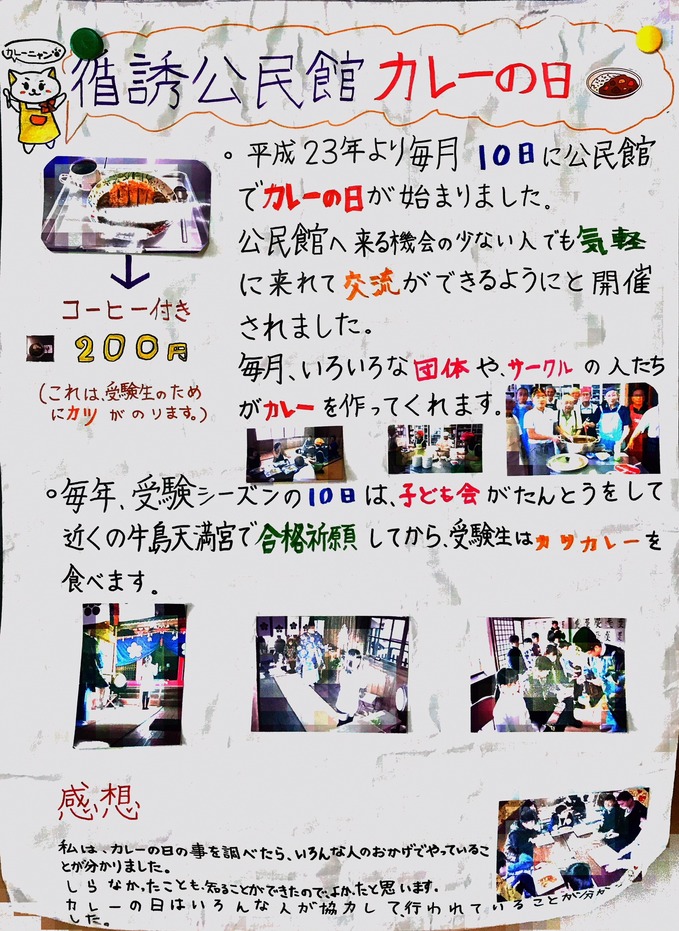 カレーニャン
循誘公民館 カレーの日
。平成23年より毎月 10日に公民館
でカレーの日が始まりました。
公民館へ来る機会の少ない人でも気軽
に来れて交流ができるようにと開催
されました。
毎月、いろいろな団体や、サークルの人たち
がカレーを作ってくれます。
コーヒー付き
200円
(これは、受験生のため
にカツがのります。)
。毎年、受験シーズンの10日は、子ども会がたんとうをして
近くの牛島天満宮で合格祈願してから、受験生はカツカレーを
食べます。
感想
私は、カレーの日の事を調べたら、いろんな人のおかげでやっているこ
とが分かりました。
しらなかったことも、知ることができたので、よかったと思います。
カレーの日はいろんな人が協力して、行われていることが分か
した。